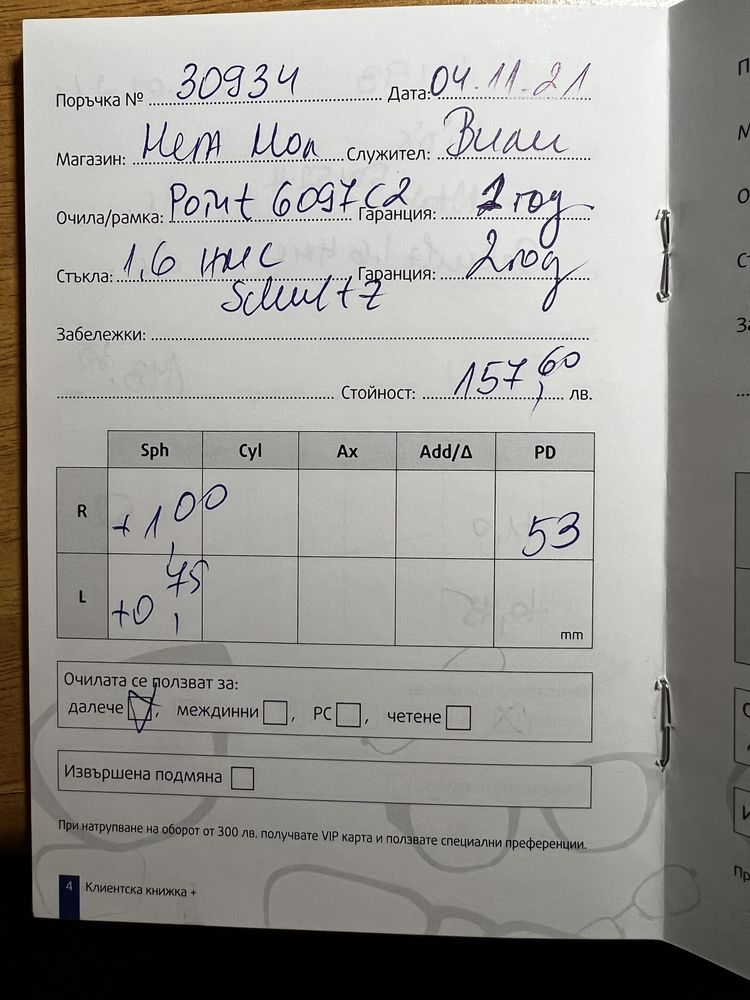 Поръчка № 30934 Дата: 04.11.21
Магазин: Мега Мол Служител:
Очила/рамка: Point 6097 C2 Гаранция: 2 год
Стъкла: 1,6 Гаранция: 2 год
Schultz
Забележки:
Стойност: 157,60 лв.
Sph Cyl Ax Add/Δ PD
R +1,00 53
L +0,75 mm
Очилата се ползват за:
далече , междинни , PC , четене
Извършена подмяна
При натрупване на оборот от 300 лв. получвате VIP карта и ползвате специални преференции.
4 Клиентска книжка +